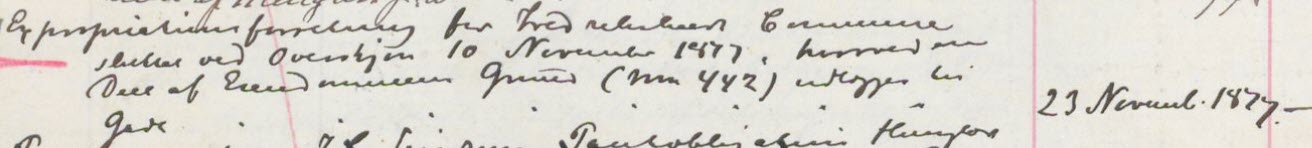 Expropriationsforretning for Fredrikshald Commune
sluttet ved Overskjøn 10 November 1877, hvorved en
Deel af Eiendommens Grund (No 442) udlægges til
Gade
23 Novemb. 1877.—
Pantobligation